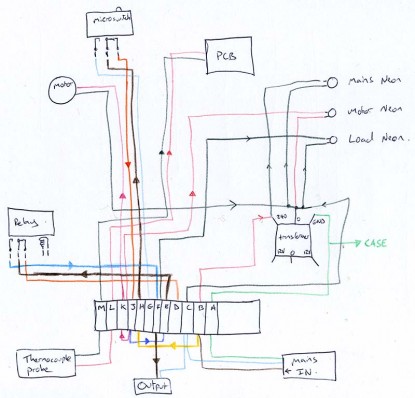 microswitch
PCB
motor
Mains Neon
Motor Neon
Load Neon.
Relay.
240
0
GND
transformer
0
CASE
M L K J H G F E D C B A
Thermocouple
probe
Output
mains
IN.